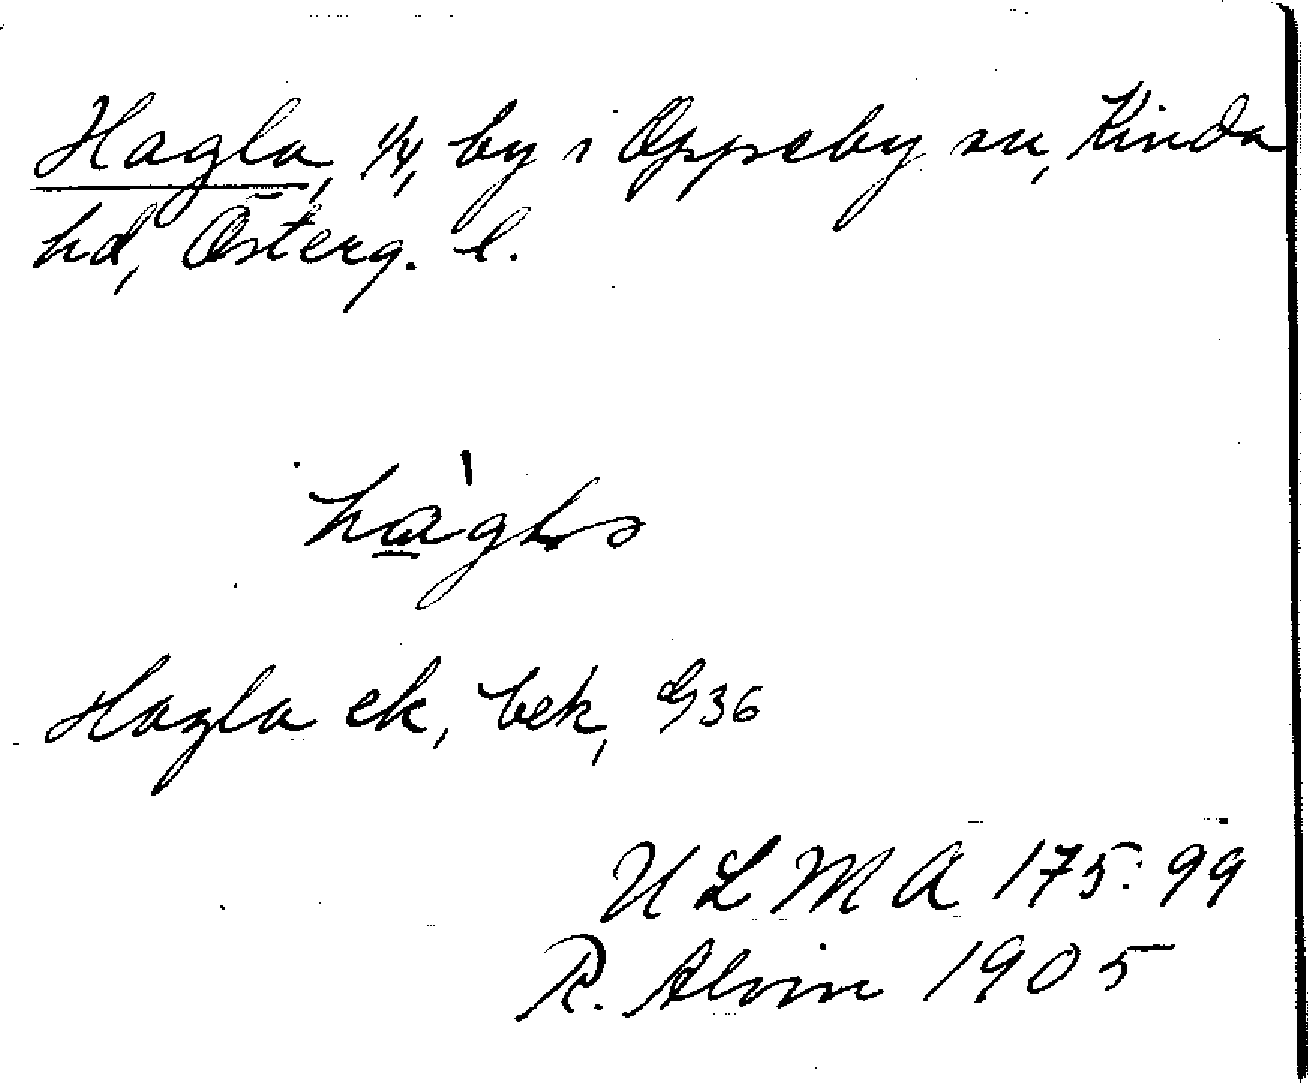 Hagla, 1/4, by i Oppeby sn, Kinda
hd, Österg. l.
Hagla ek, bek, G36
ULMA 175:99
R. Alvin 1905